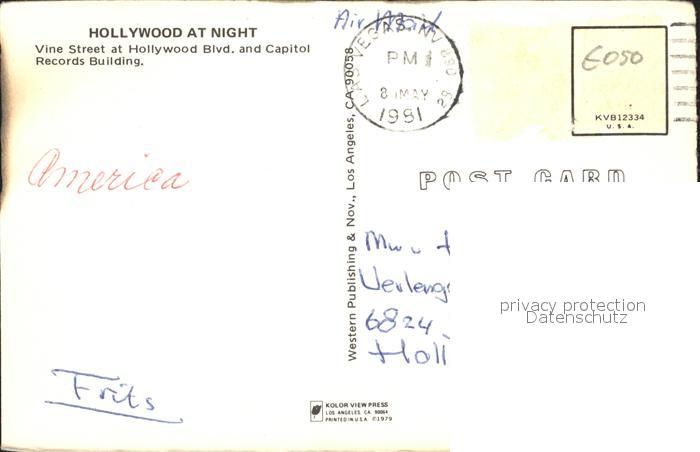 HOLLYWOOD AT NIGHT
Vine Street at Hollywood Blvd. and Capitol
Records Building.
America
Frits
Air Mail
Western Publishing & Nov., Los Angeles, CA 90058
LAS VEGAS, NV 890
PM
8 MAY
1981
E050
KVB12334
U. S. A.
POST CARD
6824
Holl
privacy protection
Datenschutz
KOLOR VIEW PRESS
LOS ANGELES, CA. 90064
PRINTED IN U.S.A. ©1979